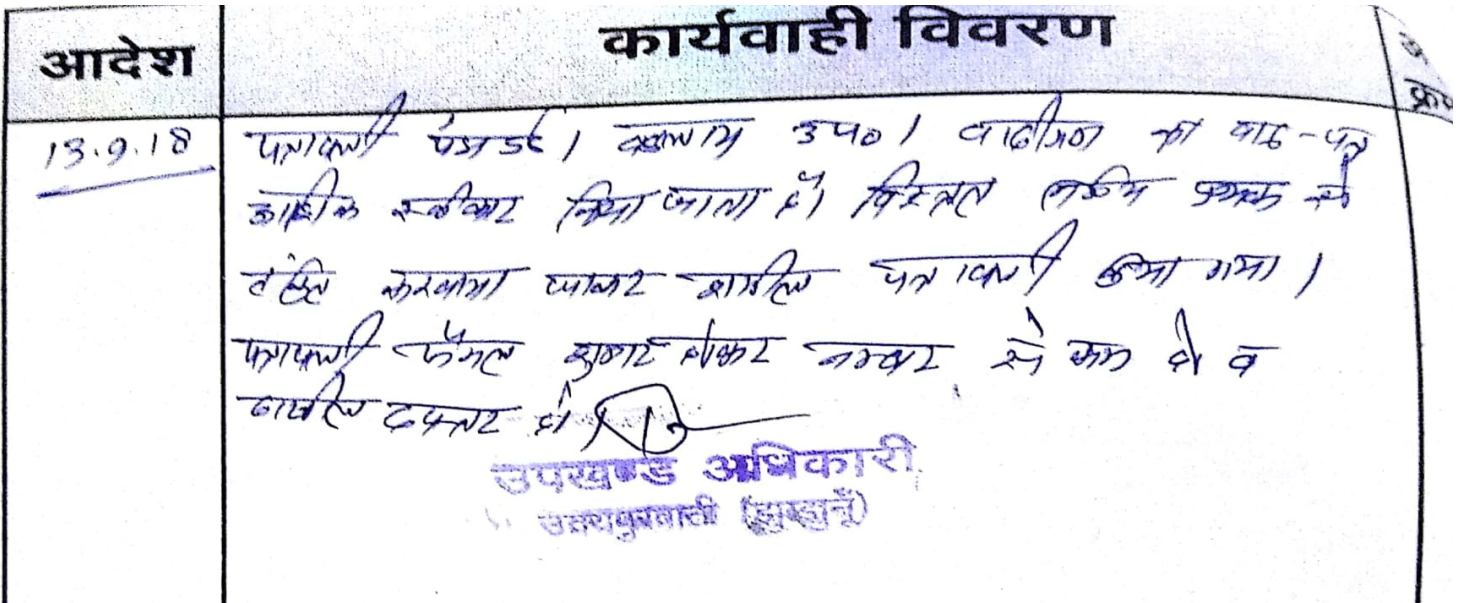 आदेश
कार्यवाही विवरण
13.9.18
पत्रावली पेश हुई। वकलाय उप०। वादीगण का वाद-पत्र
स्वीकार किया जाता है। विस्तृत निर्णय पृथक से
टंकित करवाया जाकर शामिल पत्रावली किया गया।
पत्रावली फैसल शुमार होकर नम्बर से कम हो व
दाखिल दफ्तर हो।
उपखण्ड अधिकारी
उदयपुरवाटी (झुन्झुनूँ)